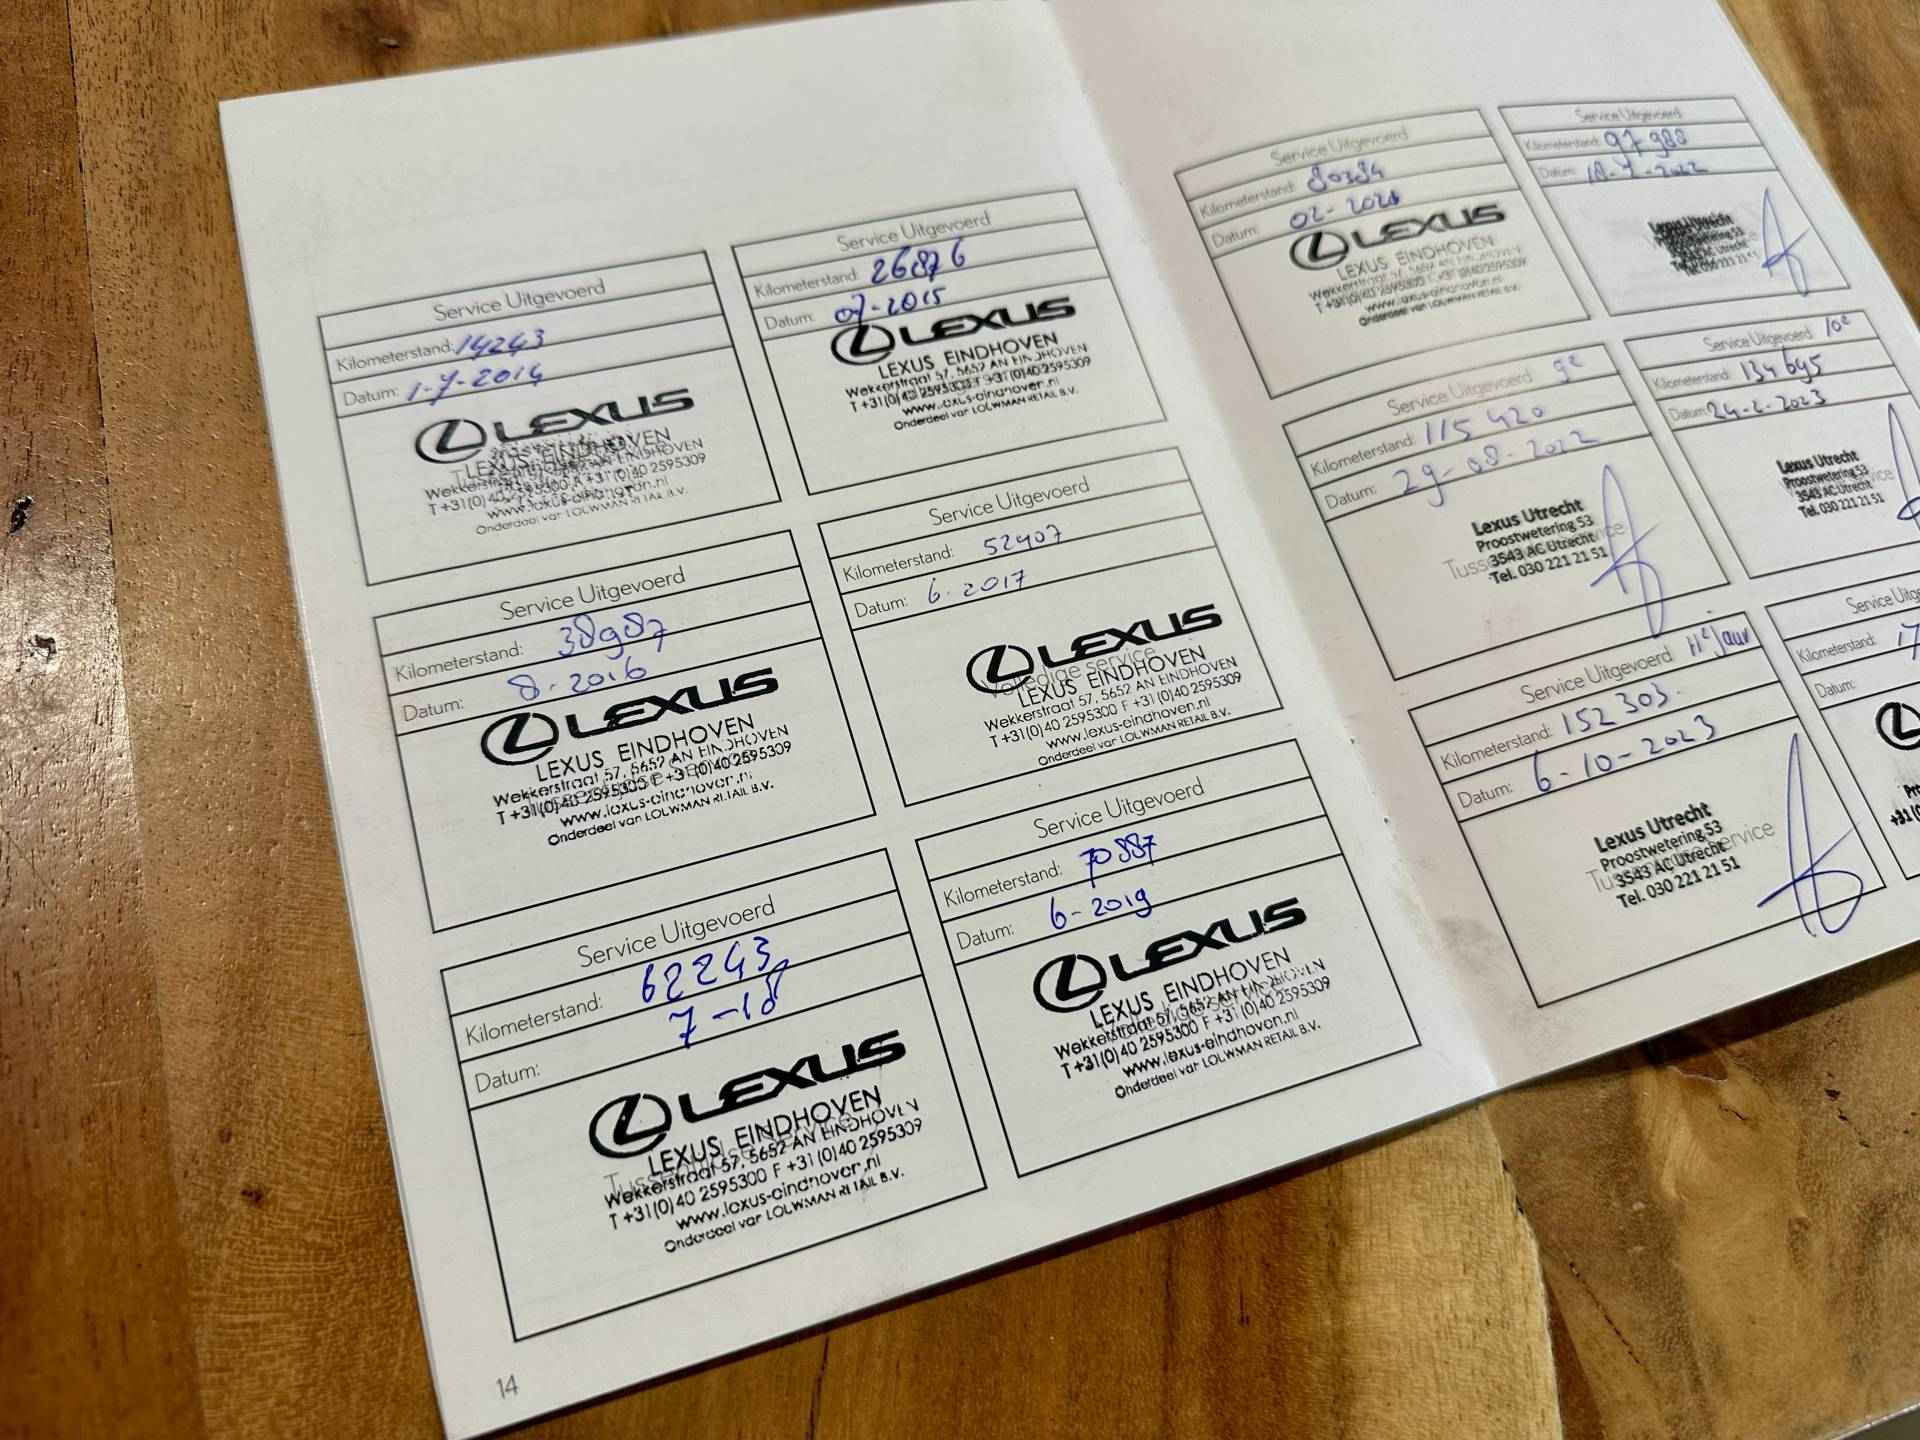 Service Uitgevoerd
Kilometerstand: 14243
Datum: 1-7-2014
LEXUS
LEXUS EINDHOVEN
Wekkerstraat 57, 5652 AN EINDHOVEN
T +31(0)40 2595300 F +31(0)40 2595309
www.lexus-eindhoven.nl
Onderdeel van LOUWMAN RETAIL B.V.
Service Uitgevoerd
Kilometerstand: 26876
Datum: 07-2015
LEXUS
LEXUS EINDHOVEN
Wekkerstraat 57, 5652 AN EINDHOVEN
T +31(0)40 2595300 F +31(0)40 2595309
www.lexus-eindhoven.nl
Onderdeel van LOUWMAN RETAIL B.V.
Service Uitgevoerd
Kilometerstand: 38987
Datum: 8-2016
LEXUS
LEXUS EINDHOVEN
Wekkerstraat 57, 5652 AN EINDHOVEN
T +31(0)40 2595300 F +31(0)40 2595309
www.lexus-eindhoven.nl
Onderdeel van LOUWMAN RETAIL B.V.
Service Uitgevoerd
Kilometerstand: 52407
Datum: 6-2017
LEXUS
Volledige service
LEXUS EINDHOVEN
Wekkerstraat 57, 5652 AN EINDHOVEN
T +31(0)40 2595300 F +31(0)40 2595309
www.lexus-eindhoven.nl
Onderdeel van LOUWMAN RETAIL B.V.
Service Uitgevoerd
Kilometerstand: 62243
Datum: 7-18
LEXUS
LEXUS EINDHOVEN
Tussentijdse service
Wekkerstraat 57, 5652 AN EINDHOVEN
T +31(0)40 2595300 F +31(0)40 2595309
www.lexus-eindhoven.nl
Onderdeel van LOUWMAN RETAIL B.V.
Service Uitgevoerd
Kilometerstand: 70887
Datum: 6-2019
LEXUS
LEXUS EINDHOVEN
Volledige service
Wekkerstraat 57, 5652 AN EINDHOVEN
T +31(0)40 2595300 F +31(0)40 2595309
www.lexus-eindhoven.nl
Onderdeel van LOUWMAN RETAIL B.V.
14
Service Uitgevoerd
Kilometerstand: 80384
Datum: 02-2021
LEXUS
LEXUS EINDHOVEN
Wekkerstraat 57, 5652 AN EINDHOVEN
www.lexus-eindhoven.nl
Onderdeel van LOUWMAN RETAIL B.V.
Service Uitgevoerd
Kilometerstand: 97 988
Datum: 18-7-2022
Lexus Utrecht
Proostwetering 53
3543 AC Utrecht
Service Uitgevoerd 9e
Kilometerstand: 115 420
Datum: 29-08-2022
Lexus Utrecht
Proostwetering 53
3543 AC Utrecht
Tel. 030 221 21 51
Service Uitgevoerd 10e
Kilometerstand: 134 695
Datum: 24-2-2023
Lexus Utrecht
Proostwetering 53
3543 AC Utrecht
Tel. 030 221 21 51
Service Uitgevoerd
Kilometerstand: 152 303
Datum: 6-10-2023
Lexus Utrecht
Proostwetering 53
Tussentijdse service
3543 AC Utrecht
Tel. 030 221 21 51
Service
Kilometerstand: 17
Datum: